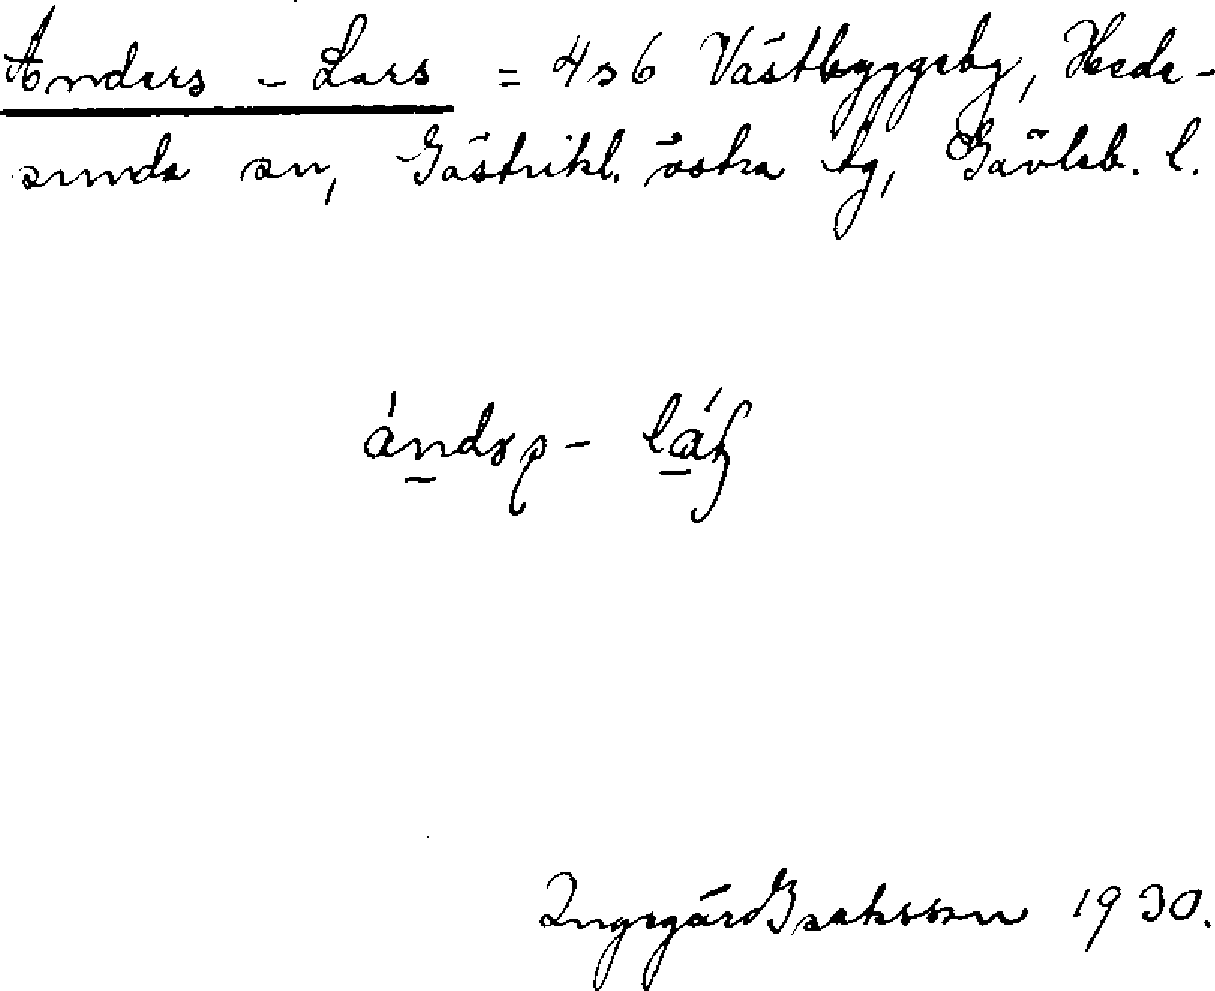 Anders - Lars = 4 s 6 Västbyggeby, Hede-
sunda sn, Gästrikl. östra tg, Gävleb. l.
Ingegärd Isaksson 1930.